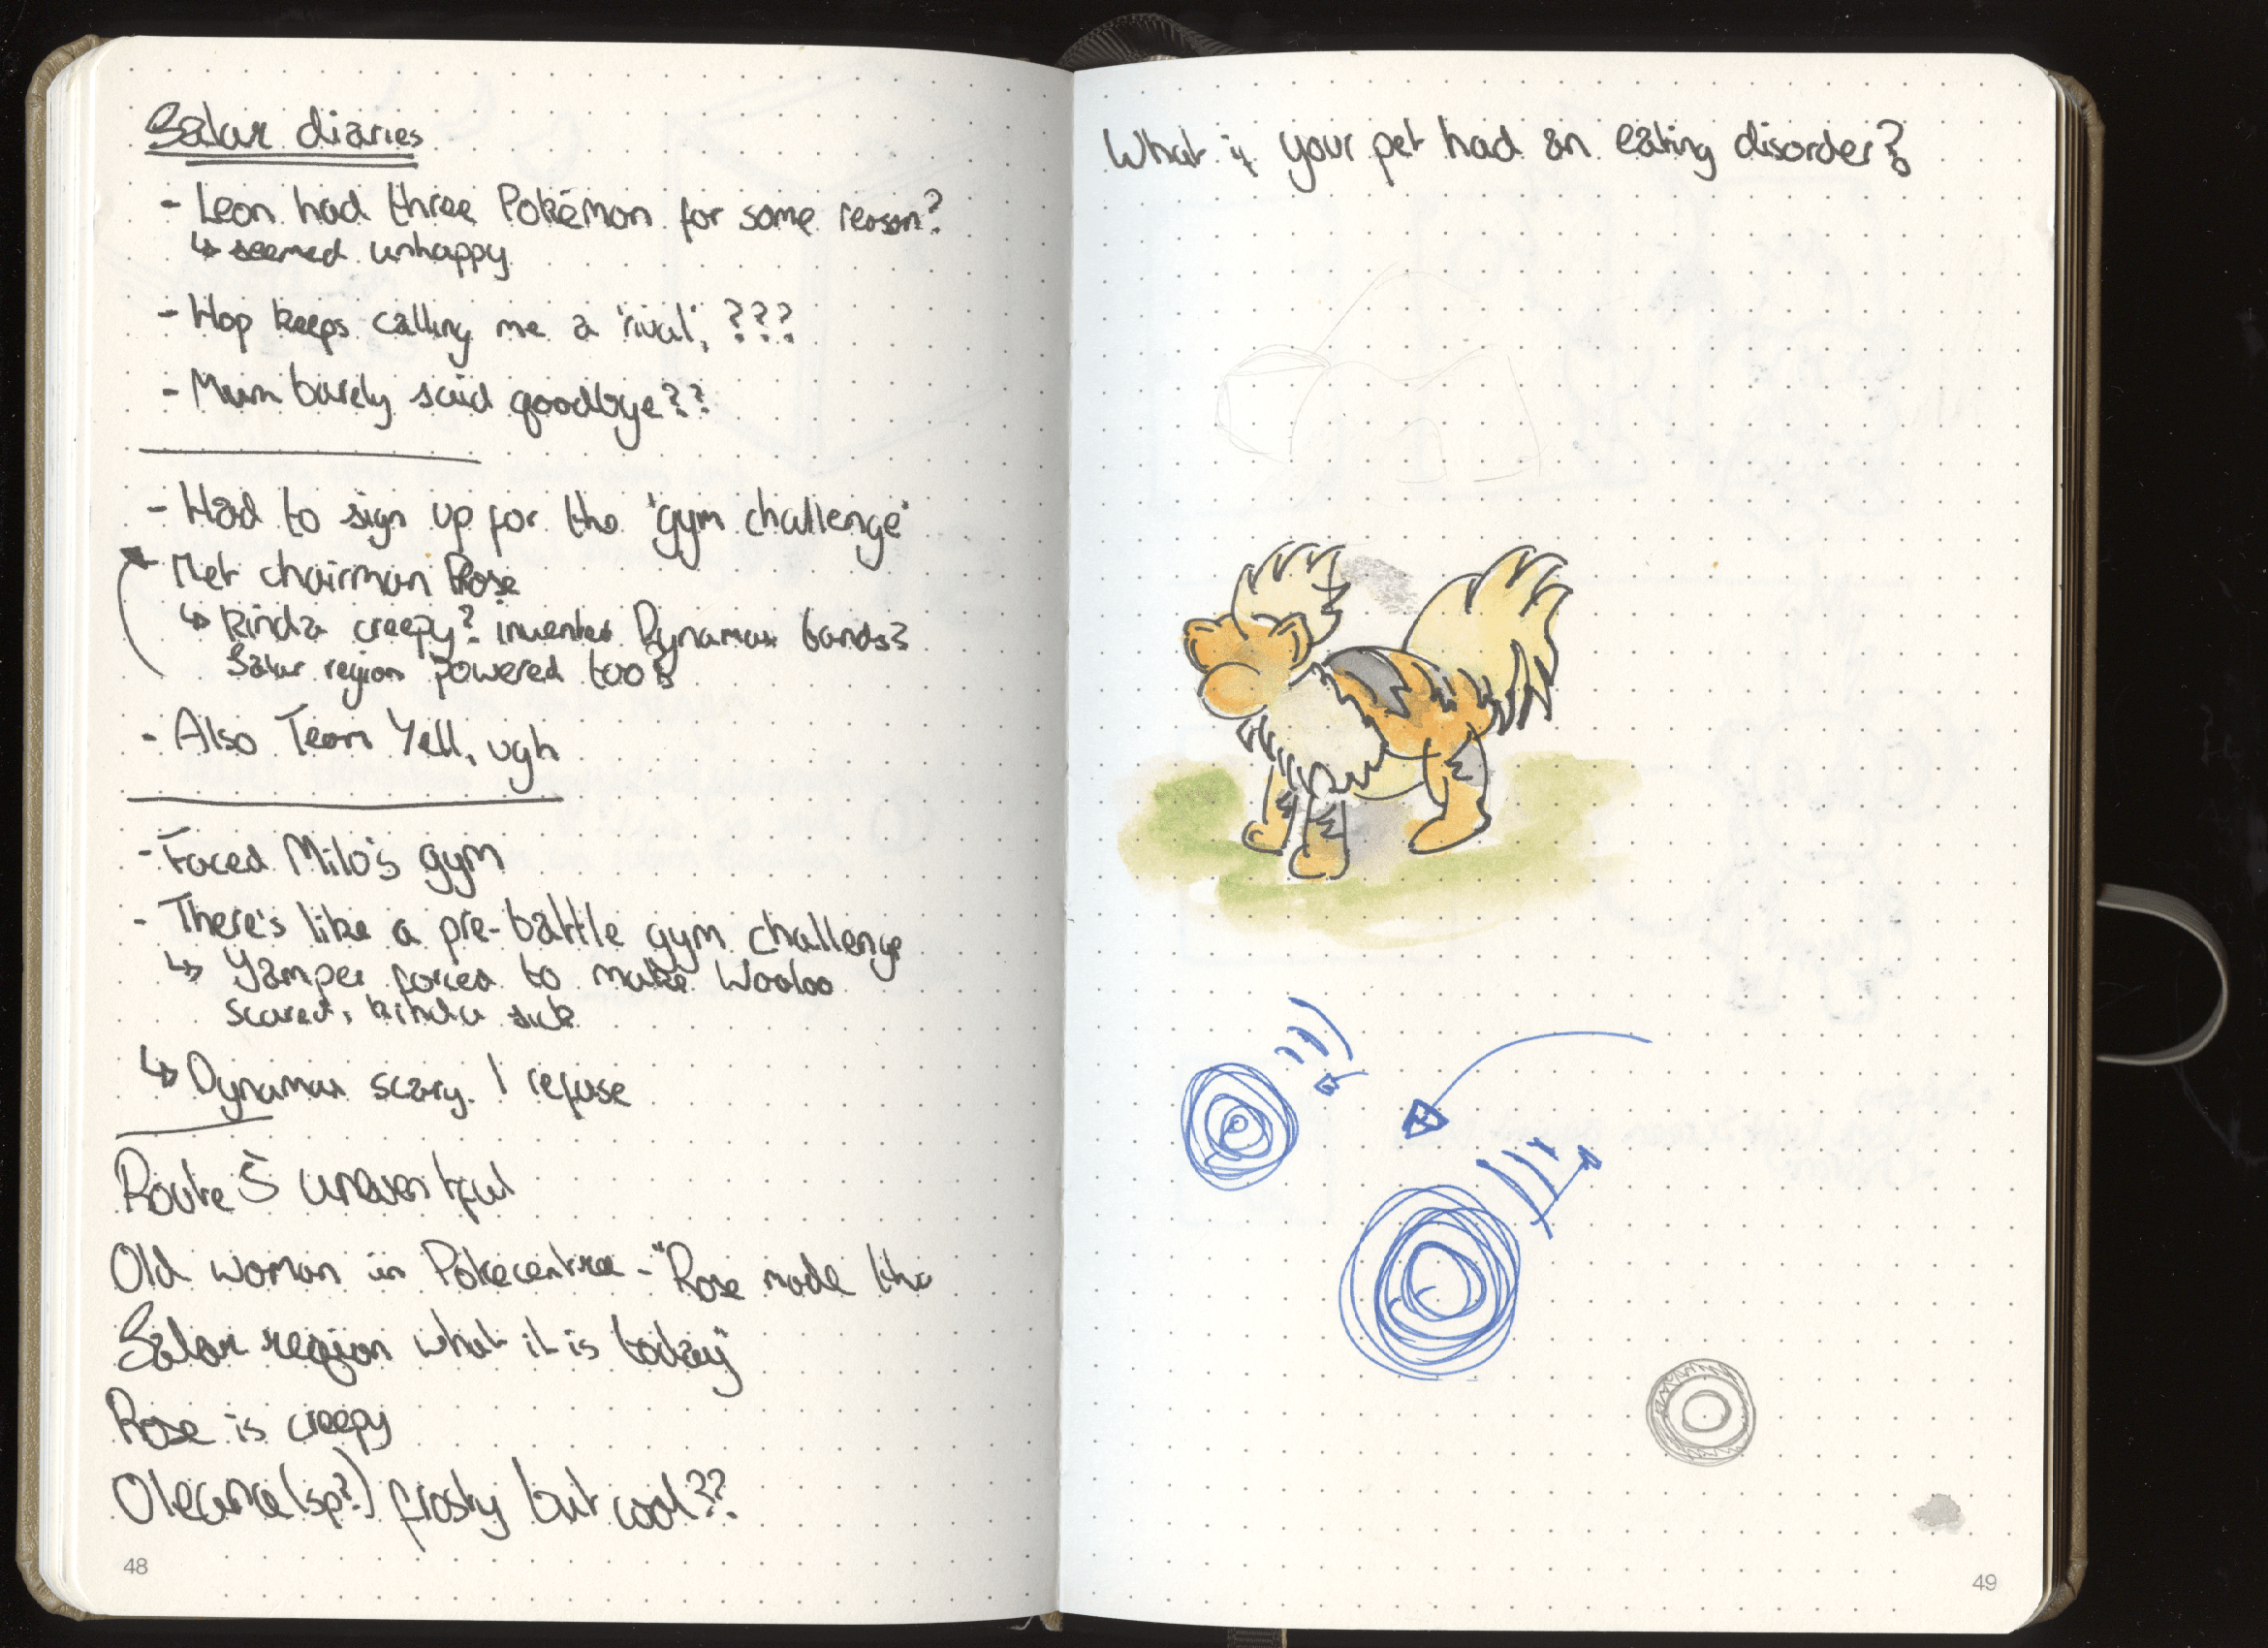 Galar diaries
- Leon had three Pokémon for some reason?
↳ seemed unhappy
- Hop keeps calling me a 'rival', ???
- Mum barely said goodbye??
- Had to sign up for the 'gym challenge'
- Met chairman Rose
↳ kinda creepy? invented Dynamax bands?
Galar region powered too?
- Also Team Yell, ugh
- Faced Milo's gym
- There's like a pre-battle gym challenge
↳ Yamper forced to make Wooloo
scared, kinda sick
↳ Dynamax scary. I refuse
Route 5 uneventful
Old woman in Pokecentre - "Rose made the
Galar region what it is today"
Rose is creepy
Oleana (sp?) frosty but cool??
48
What if your pet had an eating disorder?
49